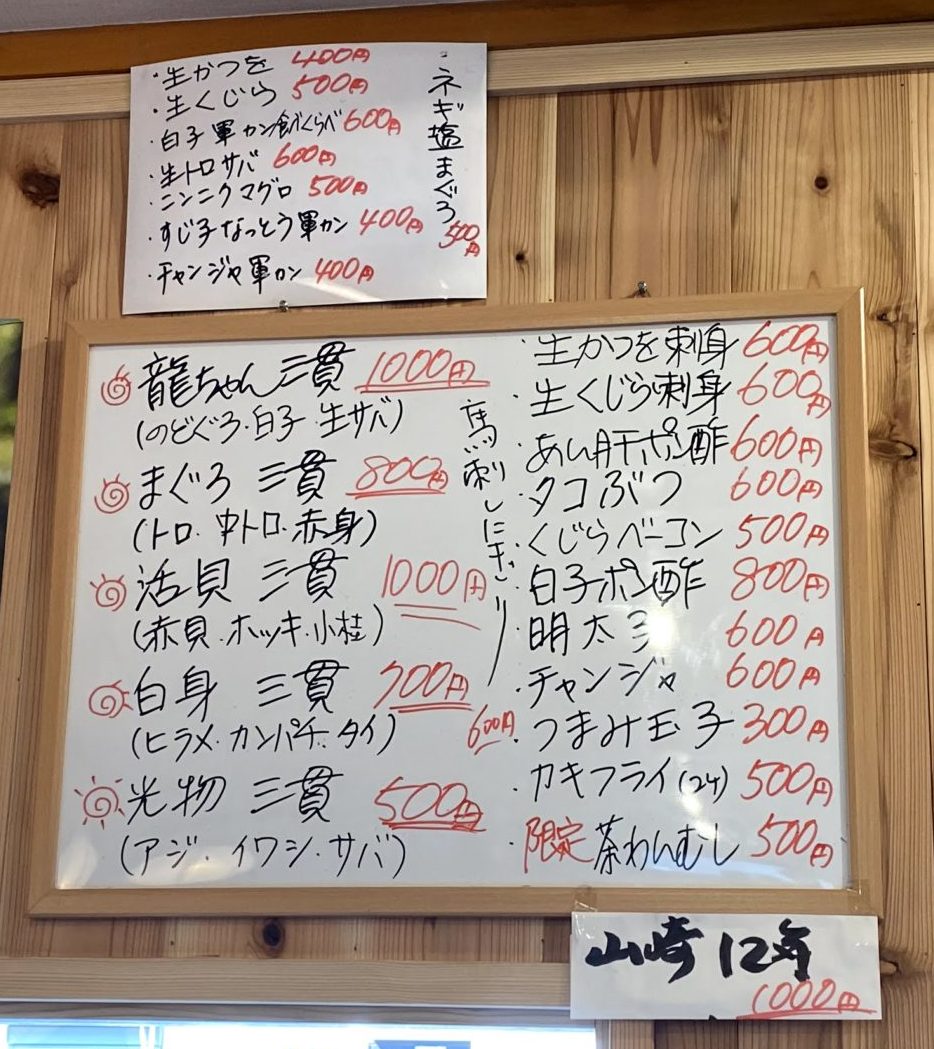 ・生かつを 400円
・生くじら 500円
・白子軍カン食べくらべ 600円
・生トロサバ 600円
・ニンニクマグロ 500円
・すじ子なっとう軍カン 400円
・チャンジャ軍カン 400円
・ネギ塩まぐろ 500円
龍ちゃん 三貫 1000円
(のどぐろ・白子・生サバ)
まぐろ 三貫 800円
(トロ・中トロ・赤身)
活貝 三貫 1000円
(赤貝・ホッキ・小柱)
白身 三貫 700円
(ヒラメ・カンパチ・タイ)
光物 三貫 500円
(アジ・イワシ・サバ)
馬刺しにぎり 600円
・生かつを刺身 600円
・生くじら刺身 600円
・あん肝ポン酢 600円
・タコぶつ 600円
・くじらベーコン 500円
・白子ポン酢 800円
・明太子 600円
・チャンジャ 600円
・つまみ玉子 300円
・カキフライ(2ケ) 500円
・限定 茶わんむし 500円
山崎 12年
1000円